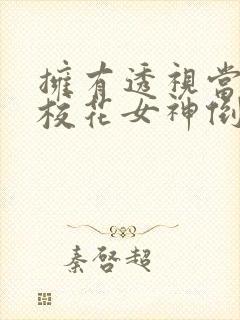 擁有透視當
校花女神倒
秦啓超